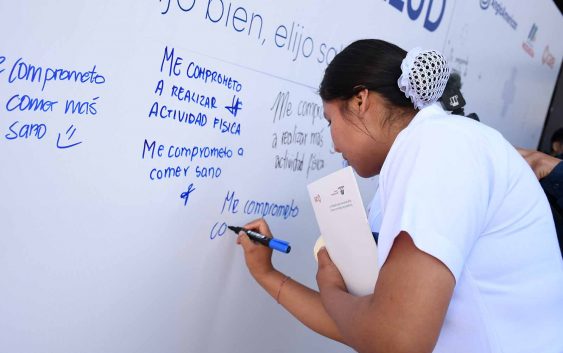 jo bien, elijo
UD
AngloAmerican
comprometo
comer más
sano
ME COMPROMETO
A REALIZAR
ACTIVIDAD FÍSICA
Me comprometo a
comer sano
Me comprometo
a realizar más
actividad física
Me comprometo
co